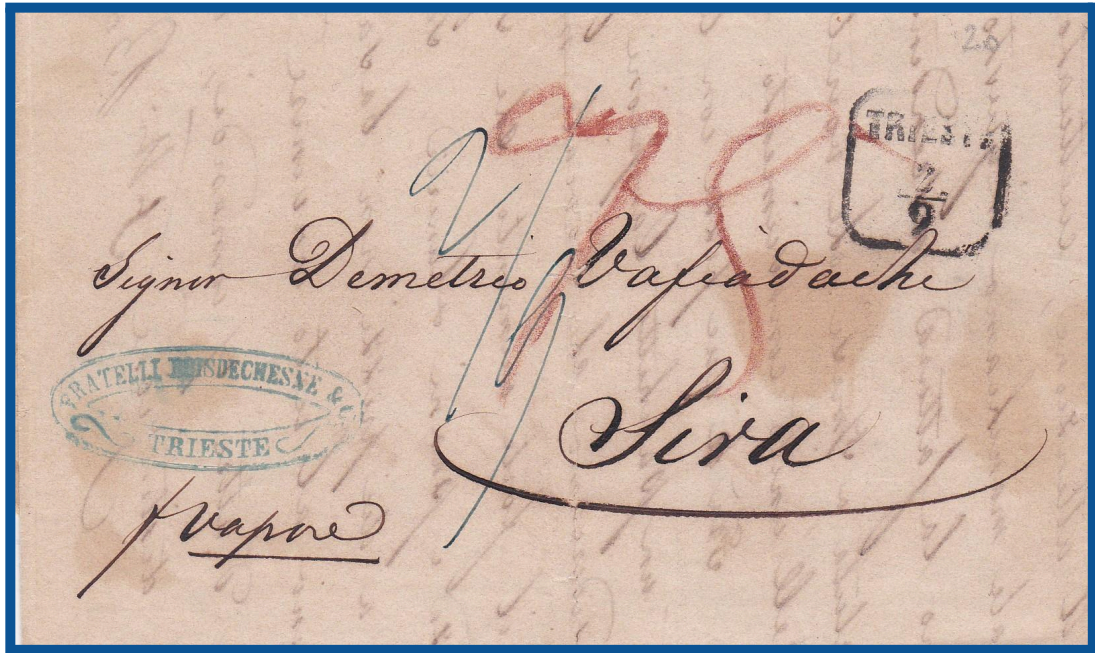 26
TRIESTE
2
9
Signor Demetrio Vafiadachi
FRATELLI BOISDECHESNE & C.
TRIESTE
Sira
p vapore